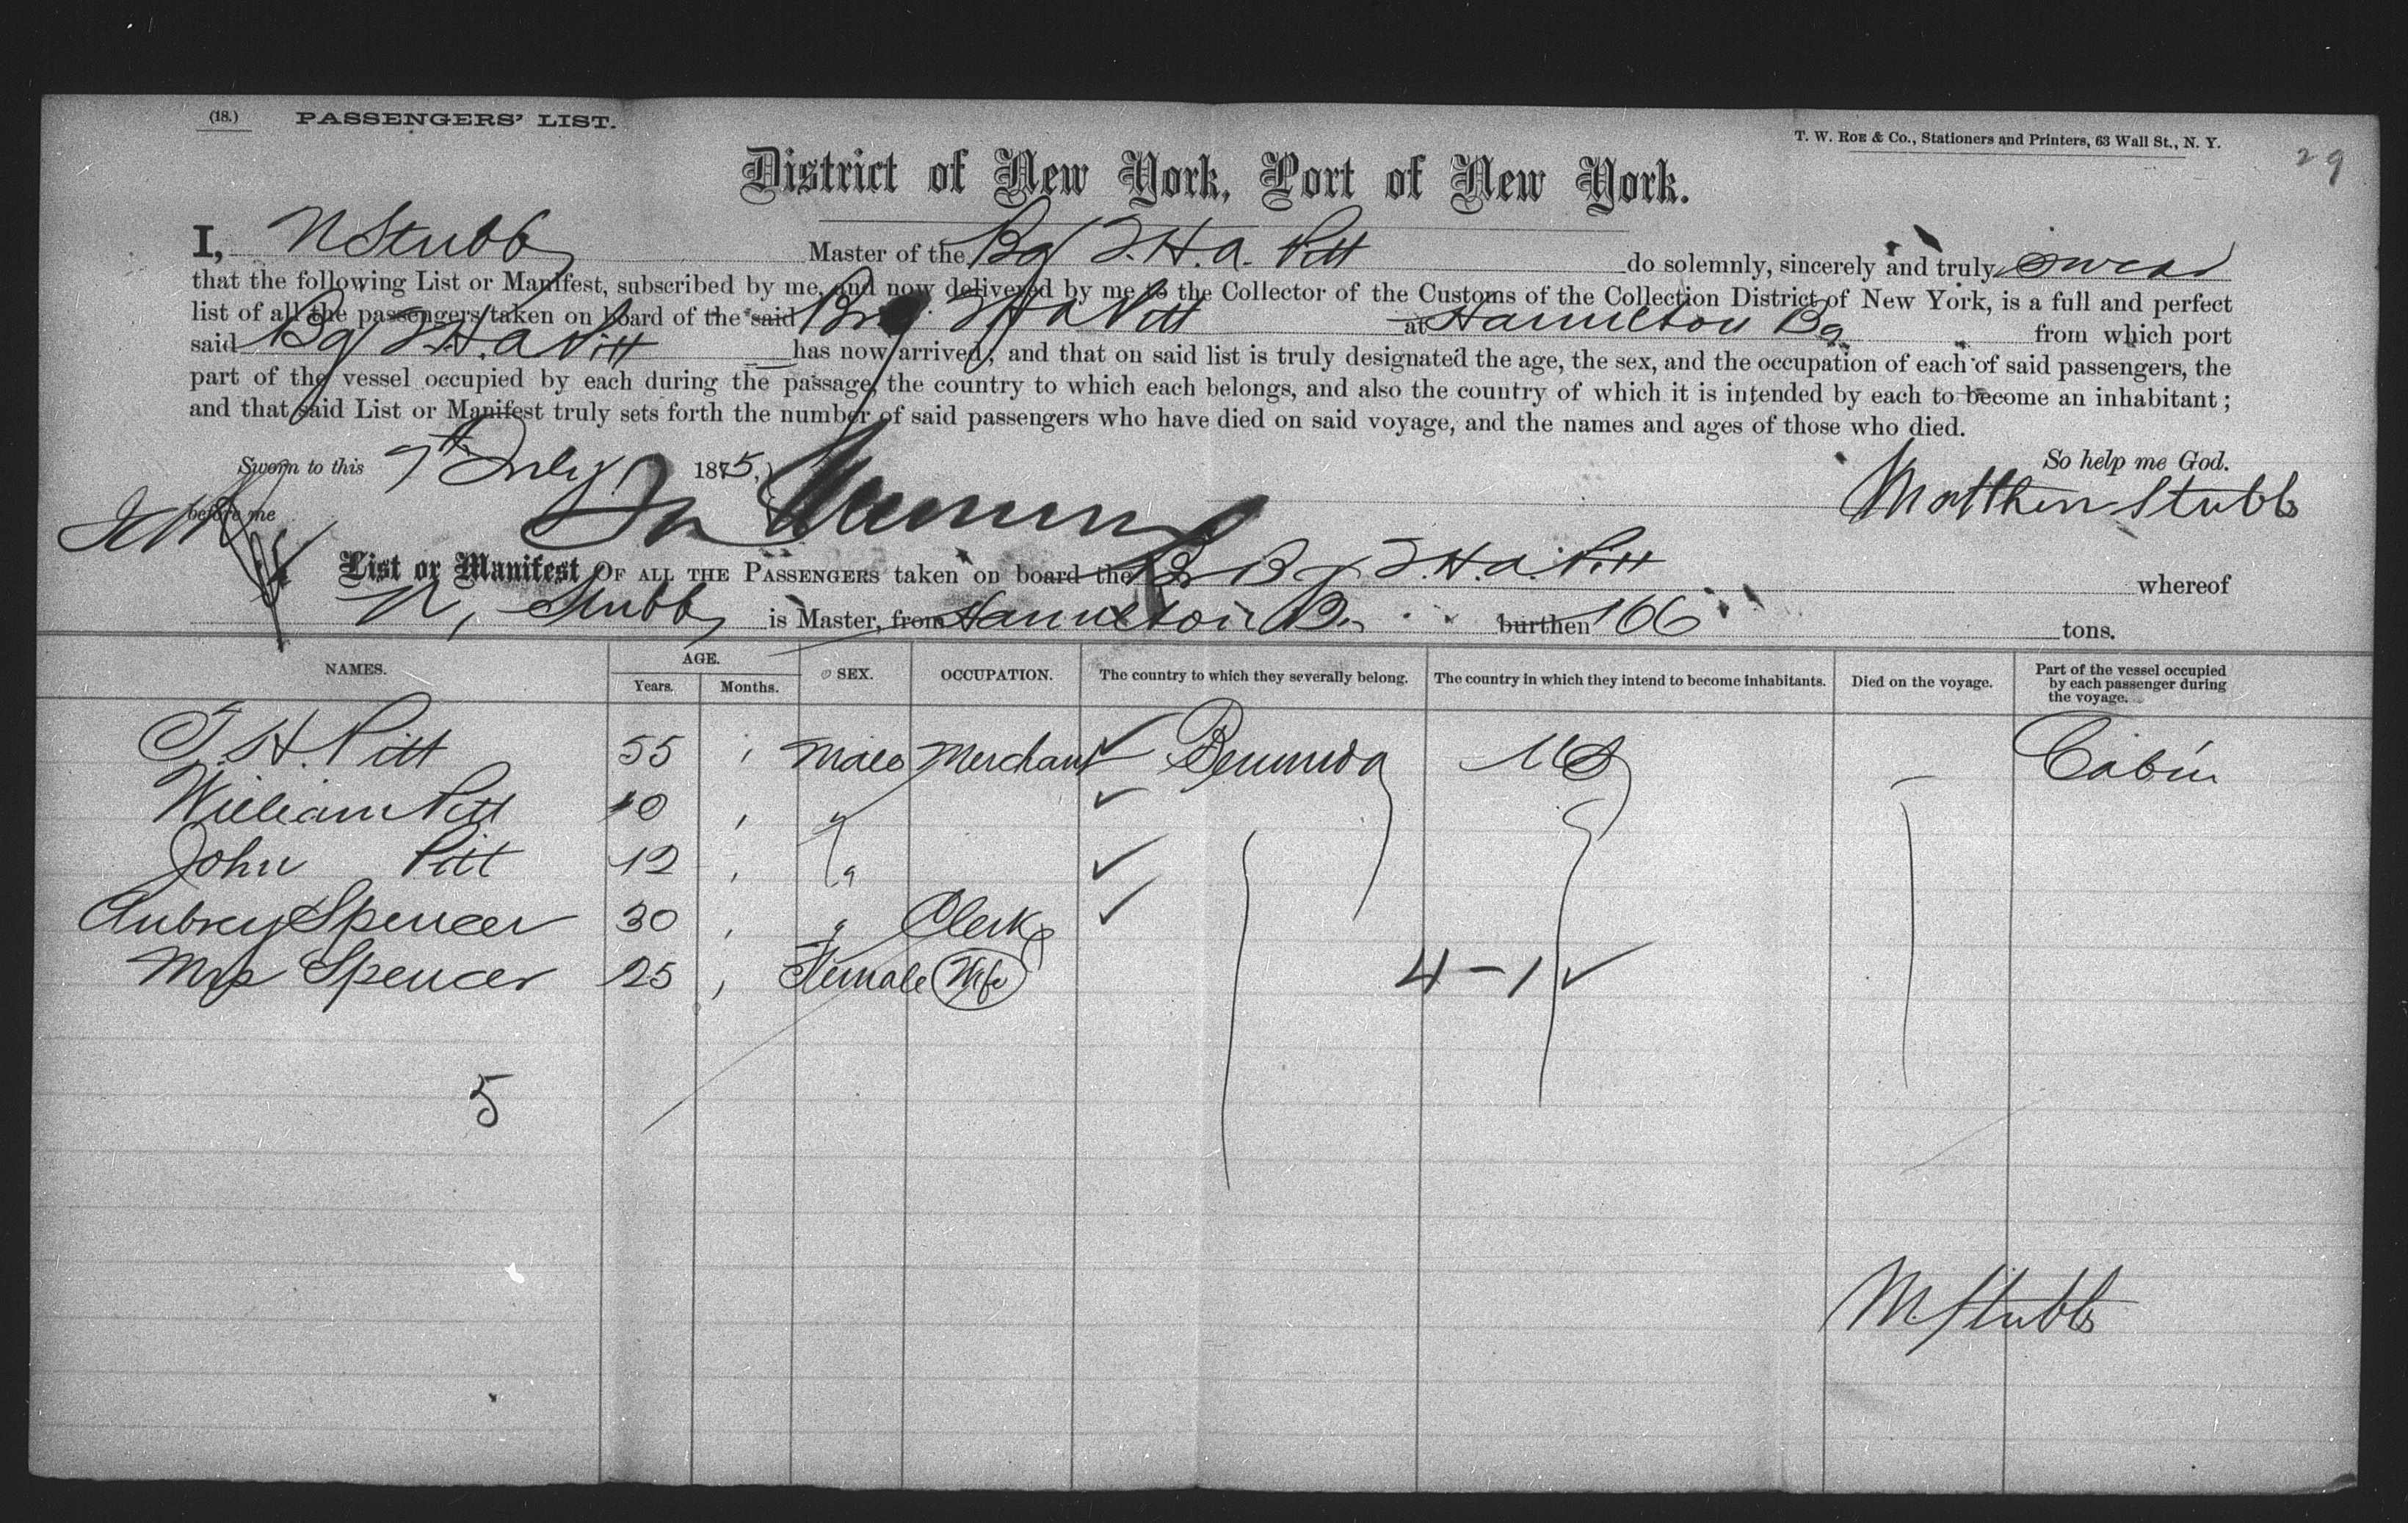 (18.) PASSENGERS' LIST.
T. W. ROE & Co., Stationers and Printers, 63 Wall St., N. Y.
29
District of New York, Port of New York.
I, N Stubb Master of the Bg T. H. A. Pitt do solemnly, sincerely and truly swear
that the following List or Manifest, subscribed by me, and now delivered by me to the Collector of the Customs of the Collection District of New York, is a full and perfect
list of all the passengers taken on board of the said Brig T H A Pitt at Hamilton Ba from which port
said Bg T. H. A Pitt has now arrived; and that on said list is truly designated the age, the sex, and the occupation of each of said passengers, the
part of the vessel occupied by each during the passage, the country to which each belongs, and also the country of which it is intended by each to become an inhabitant;
and that said List or Manifest truly sets forth the number of said passengers who have died on said voyage, and the names and ages of those who died.
Sworn to this 7th July 1875,
So help me God.
before me
Matthew Stubbs
List or Manifest OF ALL THE PASSENGERS taken on board the Br Bg T. H. A. Pitt whereof
N, Stubb is Master, from Hamilton B. burthen 166 tons.
NAMES. AGE. Years. Months. SEX. OCCUPATION. The country to which they severally belong. The country in which they intend to become inhabitants. Died on the voyage. Part of the vessel occupied by each passenger during the voyage.
T. H. Pitt 55 Male Merchant ✓ Bermuda US Cabin
William Pitt 10 " ✓
John Pitt 12 " ✓
Aubrey Spencer 30 " Clerk ✓
Mrs Spencer 25 Female Wife 4 - 1 ✓
5
M Stubbs